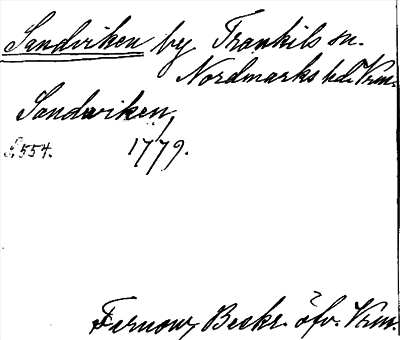 Sandviken by Trankils sn.
Nordmarks hd. Vrm.
Sandwiken,
S. 554. 1779.
Fernow, Beskr. öfv. Vrm.